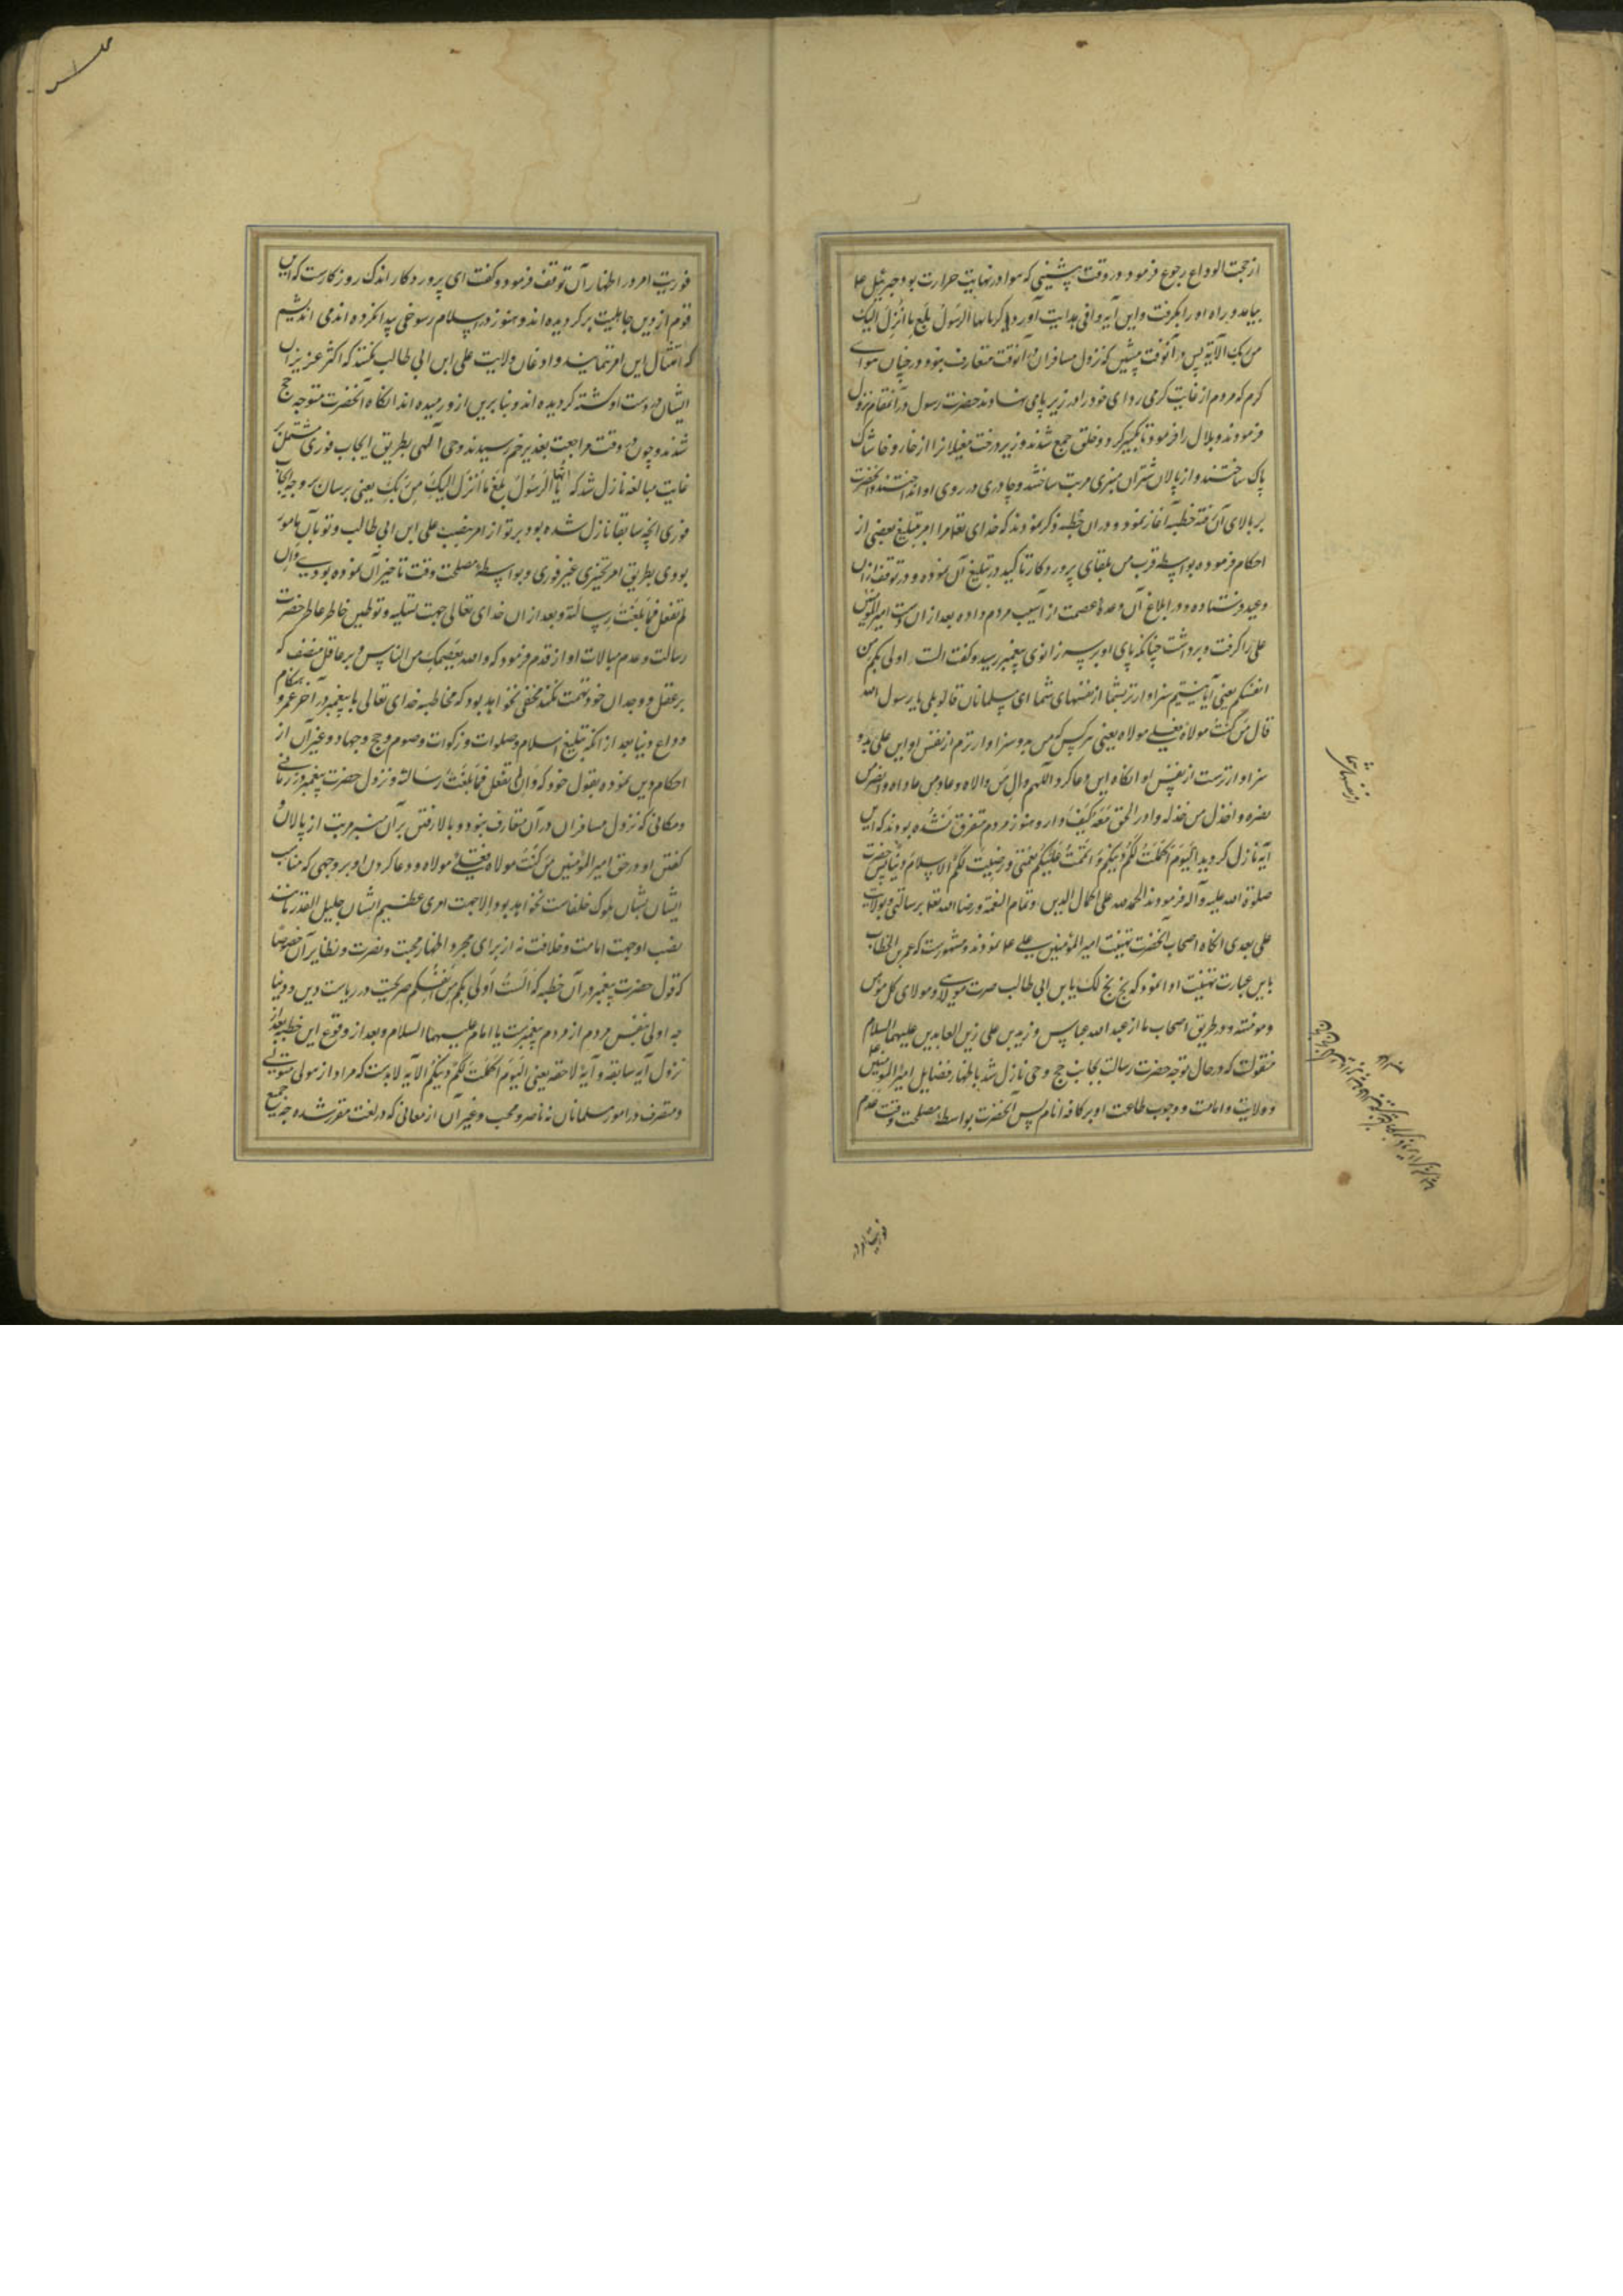 از حجت الوداع رجوع فرمود در وقت پیشینی که هوا در نهایت حرارت بود جبرئیل ع
بیامد و راه او را بگرفت و این آیه وافی هدایت آورد یا ایها الرسول بلغ ما انزل الیک
من ربک الآیه پس در آنوقت پیشین که نزول مسافران در آنوقت متعارف نبود و در چنان هوای
گرم که مردم از غایت گرمی ردای خود را در زیر پا می نهادند حضرت رسول در آنمقام نزول
فرمودند و بلال را فرمود تا تکبیر کرد و خلق جمع شدند و زیر درخت مغیلانرا از خار و خاشاک
پاک ساختند و از پالان شتران منبری مرتب ساختند و چادری در روی او انداختند و آنحضرت
بر بالای آن رفته خطبه آغاز نمود و در ان خطبه ذکر نمودند که خدای تعم مرا امر بتبلیغ بعضی از
احکام فرموده بواسطه قرب من بلقای پروردکار تاکید در تبلیغ آن نموده و در توقف ازان
وعید فرستاده و در ابلاغ آن وعده عصمت از آسیب مردم داده بعد از ان دست امیرالمؤمنین
علی را گرفت و برداشت چنانکه پای او بر سر زانوی پیغمبر رسید و گفت الست اولی بکم من
انفسکم یعنی آیا نیستیم سزاوارتر بشما از نفسهای شما ای مسلمانان قالو بلی یا رسول الله
قال من کنت مولاه فعلی مولاه یعنی هر کس که من بدو سزاوارترم از نفس او این علی بدو
سزاوارترست از نفس او انکاه این دعا کرد اللهم وال من والاه و عاد من عاداه وانصر من
نصره واخذل من خذله وادر الحق معه کیف دار و هنوز مردم متفرق نشده بودند که این
آیه نازل کردید الیوم اکملت لکم دینکم و اتممت علیکم نعمتی و رضیت لکم الاسلام دینا پس حضرت
صلوة الله علیه و آله فرمودند الحمد لله علی اکمال الدین و تمام النعمة و رضاء الله تعم برسالتی و بولایت
علی بعدی انکاه اصحاب آنحضرت تهنیت امیرالمؤمنین علی ع نمودند و مشهورست که عمر بن الخطاب
باین عبارت تهنیت او نمود که بخ بخ لک یابن ابی طالب صرت مولای و مولای کل مومن
و مومنه و در طریق اصحاب ما از عبدالله عباس و زید بن علی زین العابدین علیهما السلام
منقولست که در حال توجه حضرت رسالت بجانب حج وحی نازل شد باظهار فضایل امیرالمومنین علی
و ولایت و امامت و وجوب طاعت او بر کافه انام پس آنحضرت بواسطه مصلحت وقت و عدم
از نفسهای شما
فوریت امر در
فوریت امر در اظهار آن توقف فرمود و گفت ای پروردکار اندک روزکارست که این
قوم از دین جاهلیت برکردیده اند و هنوز در اسلام رسوخی پیدا نکرده اند می اندیشم
که امتثال این امر ننمایند و اذعان ولایت علی ابن ابی طالب نکنند که اکثر عزیزان
ایشان در دست او کشته کردیده اند و بنابرین ازو رمیده اند انکاه آنحضرت متوجه حج
شدند و چون در وقت مراجعت بغدیر خم رسیدند وحی آلهی بطریق ایجاب فوری مشتمل بر
غایت مبالغه نازل شد که یا ایها الرسول بلغ ما انزل الیک من ربک یعنی برسان بر وجه ایجاب
فوری انچه سابقا نازل شده بود بر تو از امر بنصب علی ابن ابی طالب و تو بآن مامور
بودی بطریق امر تخییری غیر فوری و بواسطه مصلحت وقت تاخیر آن نموده بودی وان
لم تفعل فما بلغت رسالته و بعد از ان خدای تعالی جهت تسلیه و توطین خاطر عاطر حضرت
رسالت و عدم مبالات او از قدم فرمود که والله یعصمک من الناس و بر عاقل منصف که
بر عقل و وجدان خود تهمت نکند مخفی نخواهد بود که مخاطبه خدای تعالی با پیغمبر در آخر عمر و هنکام
وداع دنیا بعد از انکه تبلیغ اسلام و صلوات و زکوات و صوم و حج و جهاد و غیر آن از
احکام دین نموده بقول خود که وان لم تفعل فما بلغت رسالته و نزول حضرت پیغمبر در زمانی
و مکانی که نزول مسافران در آن متعارف نبود و بالا رفتن بر آن منبر مرتب از پالان و
کفتن او در حق امیرالمؤمنین من کنت مولاه فعلی مولاه و دعا کردن او بر وجهی که مناسب
ایشان بشان ملوک خلفاست نخواهد بود الا جهت امری عظیم الشان جلیل القدر مانند
نصب او جهت امامت و خلافت نه از برای مجرد اظهار محبت و نصرت و نظایر آن خصوصا
که قول حضرت پیغمبر در آن خطبه که الست اولی بکم من انفسکم صریحست در ریاست دین و دنیا
چه اولی بنفس مردم از مردم پیغمبرست یا امام علیهما السلام و بعد از وقوع این خطبه بعد از
نزول آیه سابقه و آیه لاحقه یعنی الیوم اکملت لکم دینکم الآیه لابدست که مراد از مولی متولی
و متصرف در امور مسلمانان نه ناصر و محب و غیر آن از معانی که در لغت مقرر شده چه جمیع